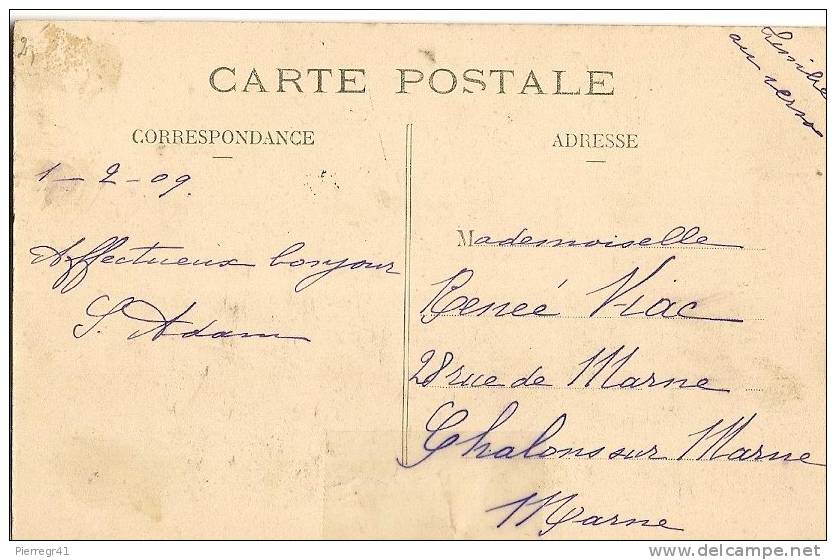 Timbre
au verso
CARTE POSTALE
CORRESPONDANCE
1-2-09.
Affectueux bonjour
S. Adam
ADRESSE
Mademoiselle
Renée Viac
28 rue de Marne
Chalons sur Marne
Marne
Pierregr41
delcampe.net